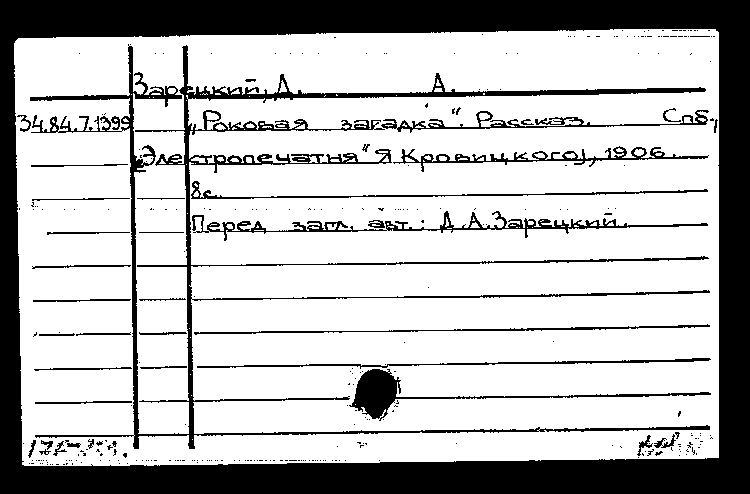 Зарецкий, Д. А.
34.84.7.1399 „Роковая загадка". Рассказ. Спб.,
„Электропечатня" Я Кровицкого], 1906.
8с.
Перед загл. авт.: Д.А.Зарецкий.